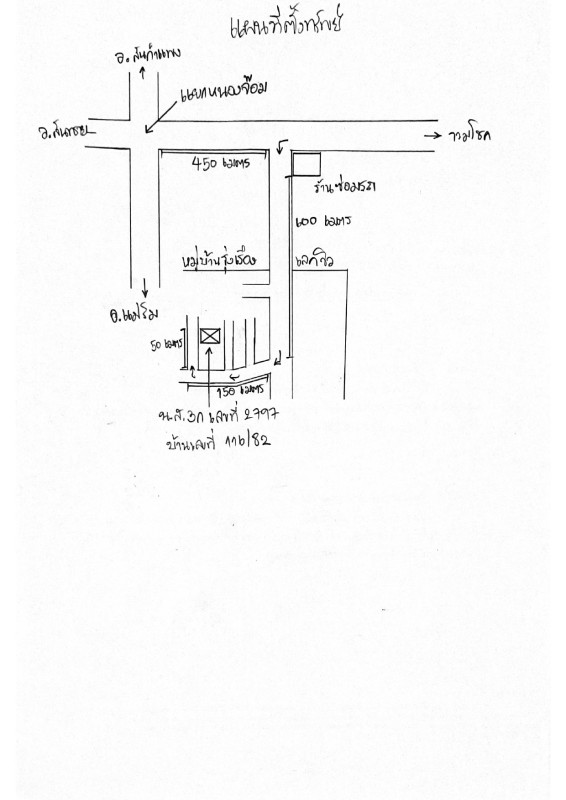 แผนที่ตั้งทรัพย์
อ.สันกำแพง
แยกหนองจ๊อม
อ.สันทราย
รวมโชค
450 เมตร
ร้านซ่อมรถ
600 เมตร
หมู่บ้านรุ่งเรือง
เลควิว
อ.แม่ริม
50 เมตร
150 เมตร
น.ส.3ก เลขที่ 2797
บ้านเลขที่ 116/82